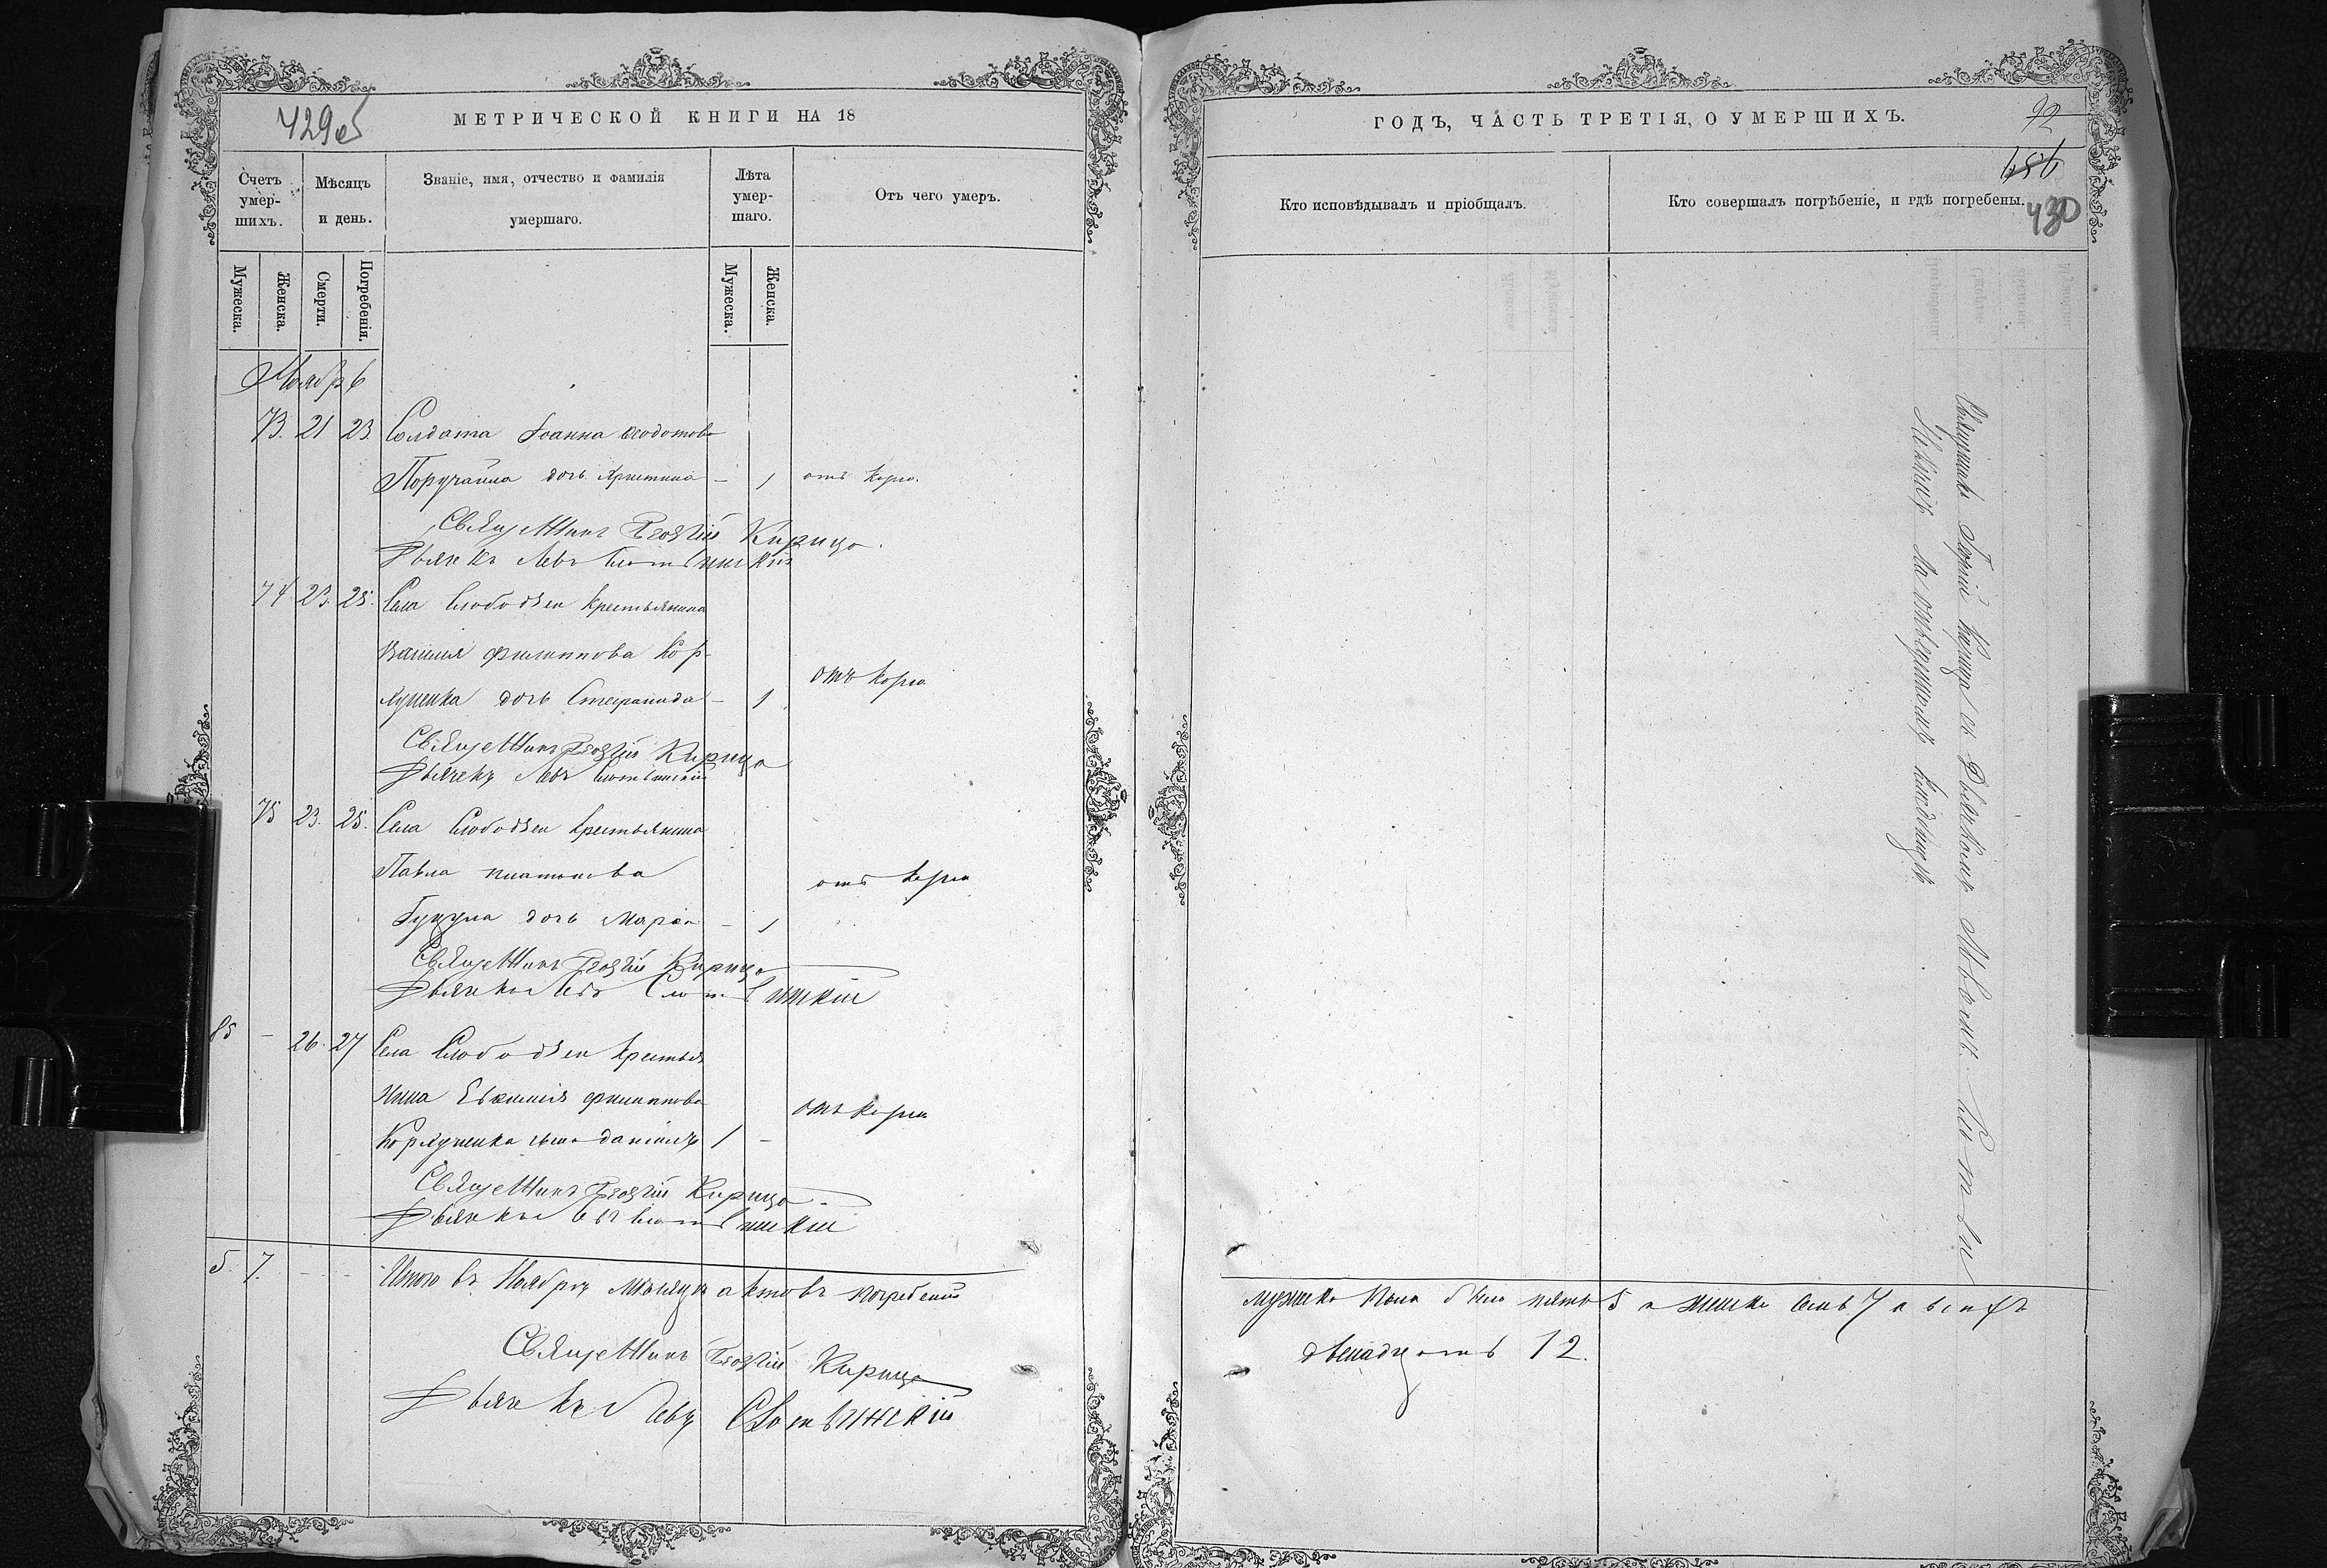 429об
МЕТРИЧЕСКОЙ КНИГИ НА 18
Счетъ умер-шихъ.
Мѣсяцъ и день.
Званіе, имя, отчество и фамилія умершаго.
Лѣта умер-шаго.
Отъ чего умеръ.
Мужеска.
Женска.
Смерти.
Погребенія.
Мужеска.
Женска.
Ноябрь
73. 21 23. Солдата Іоанна Ѳеодотова
дочь Христина – 1 отъ кори.
Священникъ Георгій Кирица.
Дьячекъ Левъ
74 23. 25. Села Слободзеи крестьянина
Филиппова Кор-
дочь Стефанида – 1 отъ кори
Священникъ Георгій Кирица
Дьячекъ Левъ
75 23. 25. Села Слободзеи крестьянина
Павла Платонова отъ кори
дочь Марія – 1
Священникъ Георгій Кирица
Дьячекъ Левъ
85 – 26. 27 Села Слободзеи крестья
нина Евѳимія Филиппова отъ кори
сынъ Даніилъ 1 –
Священникъ Георгій Кирица
Дьячекъ Левъ
5. 7. – – Итого въ Ноябрѣ мѣсяцѣ актовъ погребенія
Священникъ Георгій Кирица
Дьячекъ Левъ
ГОДЪ, ЧАСТЬ ТРЕТІЯ, О УМЕРШИХЪ.
92
656
430
Кто исповѣдывалъ и пріобщалъ.
Кто совершалъ погрѣбеніе, и гдѣ погребены.
Священникъ Георгій Кирица съ Дьячкомъ Львомъ
на кладбищѣ.
пола было пять 5 а женска семь 7 а всѣхъ
двенадцать 12.